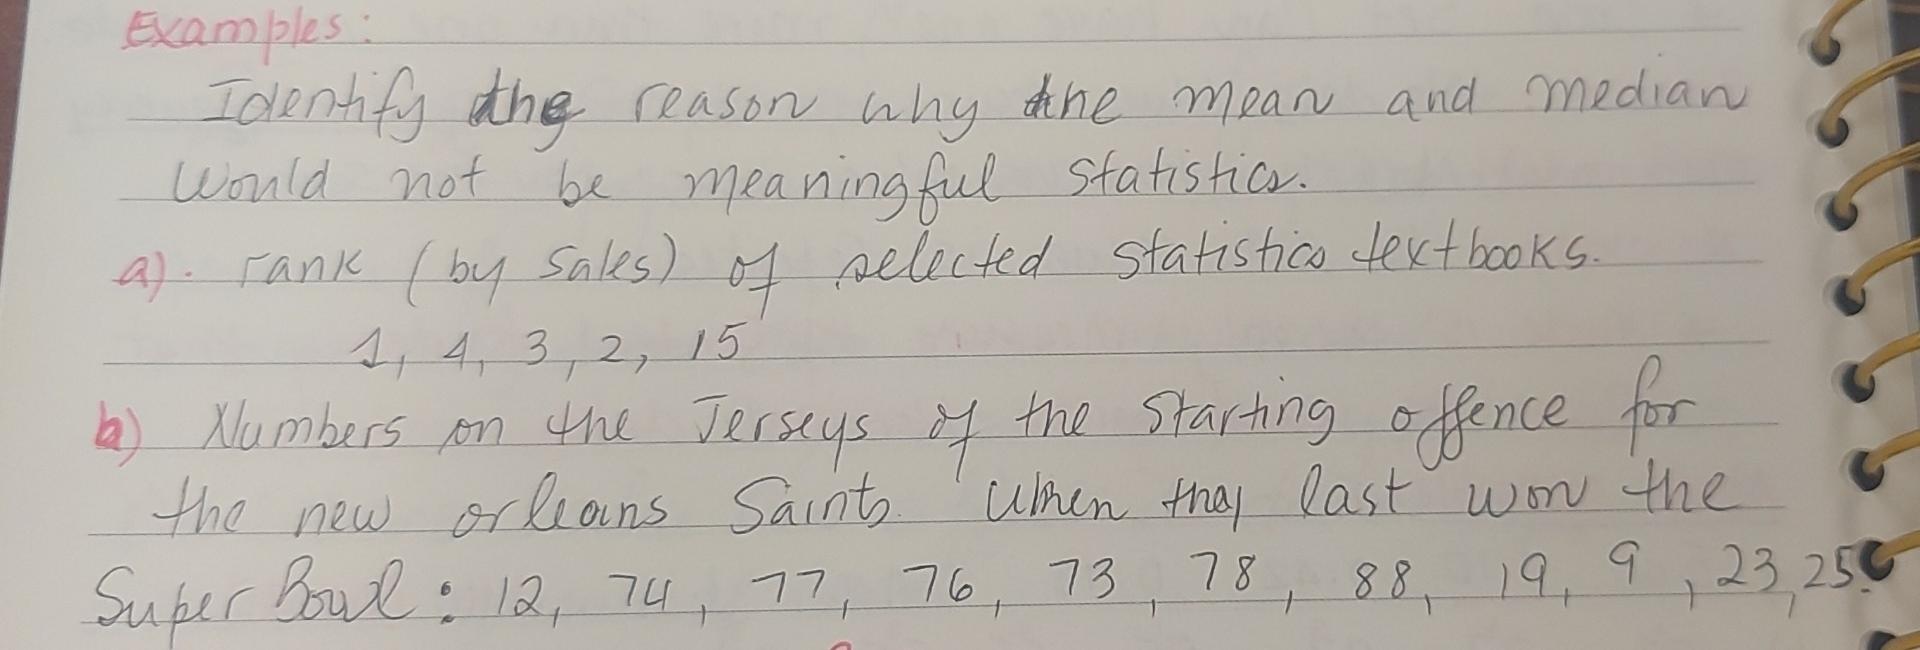 Examples:
Identify the reason why the mean and median
would not be meaningful statistics.
a). rank (by sales) of selected statistics textbooks.
1, 4, 3, 2, 15
b) Numbers on the Jerseys of the starting offence for
the new orleans Saints when they last won the
Super Bowl: 12, 74, 77, 76, 73, 78, 88, 19, 9, 23, 25.